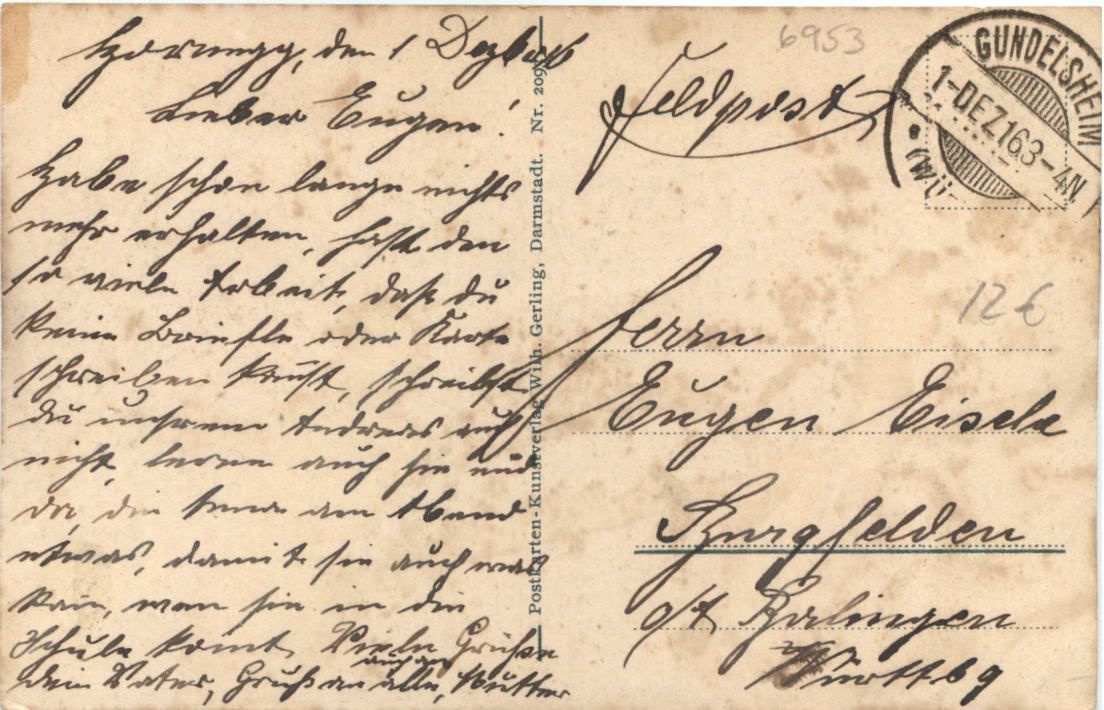 Hornegg, den 1 Dezb. 16
Lieber Eugen!
Habe schon lange nichts
mehr erhalten, hast den
so viele Arbeit, daß du
keine Briefle oder Karte
schreiben kanst, schreibst
du unserem Andreas auch
nicht, lerne auch hie und
da, die Anna am Abend
etwas, damit sie auch was
kan, wan sie in die
Schule komt. Viele Grüße
auch an
dem Vater, Gruß an alle, Mutter
Postkarten-Kunstverlag Wilh. Gerling, Darmstadt. Nr. 209
6953
Feldpost
GUNDELSHEIM
1-DEZ.16.3-4N
(WÜ
12 €
Herrn
Eugen Eisele
Burgfelden
o/A Balingen
Württbg